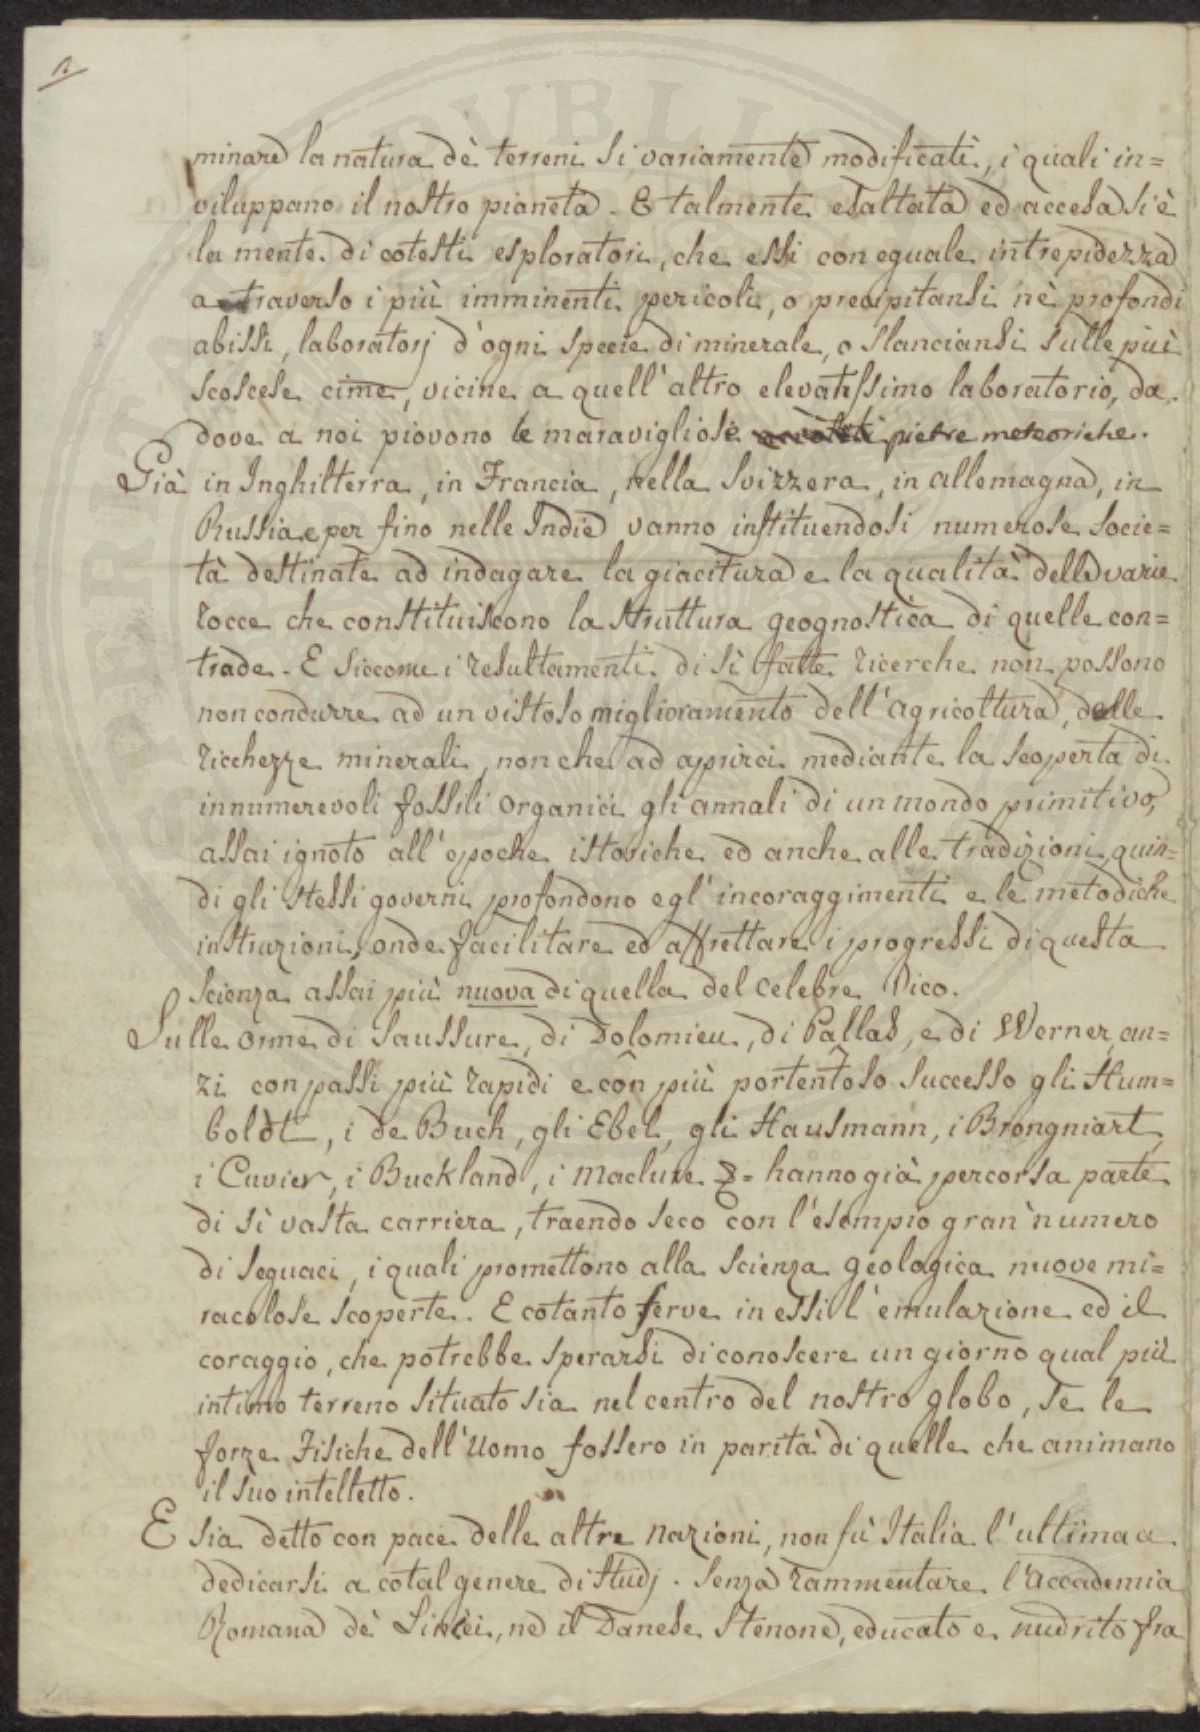 minare la natura dè terreni sì variamente modificati, i quali in=
viluppano il nostro pianeta. E talmente esaltata ed accesa si è
la mente di cotesti esploratori, che essi con eguale intrepidezza
a traverso i più imminenti pericoli, o precipitansi nè profondi
abissi, laboratorj d'ogni specie di minerale, o slanciansi sulle più
scoscese cime, vicine a quell'altro elevatissimo laboratorio, da
dove a noi piovono le maravigliose pietre meteoriche.
Già in Inghilterra, in Francia, nella Svizzera, in allemagna, in
Russia e per fino nelle Indie vanno instituendosi numerose socie=
tà destinate ad indagare la giacitura e la qualità delle varie
rocce che constituiscono la struttura geognostica di quelle con=
trade. E siccome i resultamenti di sì fatte ricerche non possono
non condurre ad un vistoso miglioramento dell'agricoltura, delle
ricchezze minerali, non che ad aprirci mediante la scoperta di
innumerevoli fossili organici gli annali di un mondo primitivo,
assai ignoto all'epoche istoriche ed anche alle tradizioni, quin=
di gli stessi governi profondono egl'incoraggimenti e le metodiche
instruzioni, onde facilitare ed affrettare i progressi di questa
scienza assai più nuova di quella del celebre Vico.
Sulle orme di Saussure, di Dolomieu, di Pallas, e di Werner, an=
zi con passi più rapidi e con più portentoso successo gli Hum=
boldt, i de Buch, gli Ebel, gli Hausmann, i Brongniart,
i Cuvier, i Buckland, i Maclure &= hanno già percorsa parte
di sì vasta carriera, traendo seco con l'esempio gran numero
di seguaci, i quali promettono alla scienza geologica nuove mi=
racolose scoperte. E cotanto ferve in essi l'emulazione ed il
coraggio, che potrebbe sperarsi di conoscere un giorno qual più
intimo terreno situato sia nel centro del nostro globo, se le
forze Fisiche dell'Uomo fossero in parità di quelle che animano
il suo intelletto.
E sia detto con pace delle altre Nazioni, non fù Italia l'ultima a
dedicarsi a cotal genere di studj. Senza rammentare l'Accademia
Romana dè Lincei, ne il Danese Stenone, educato e nudrito fra